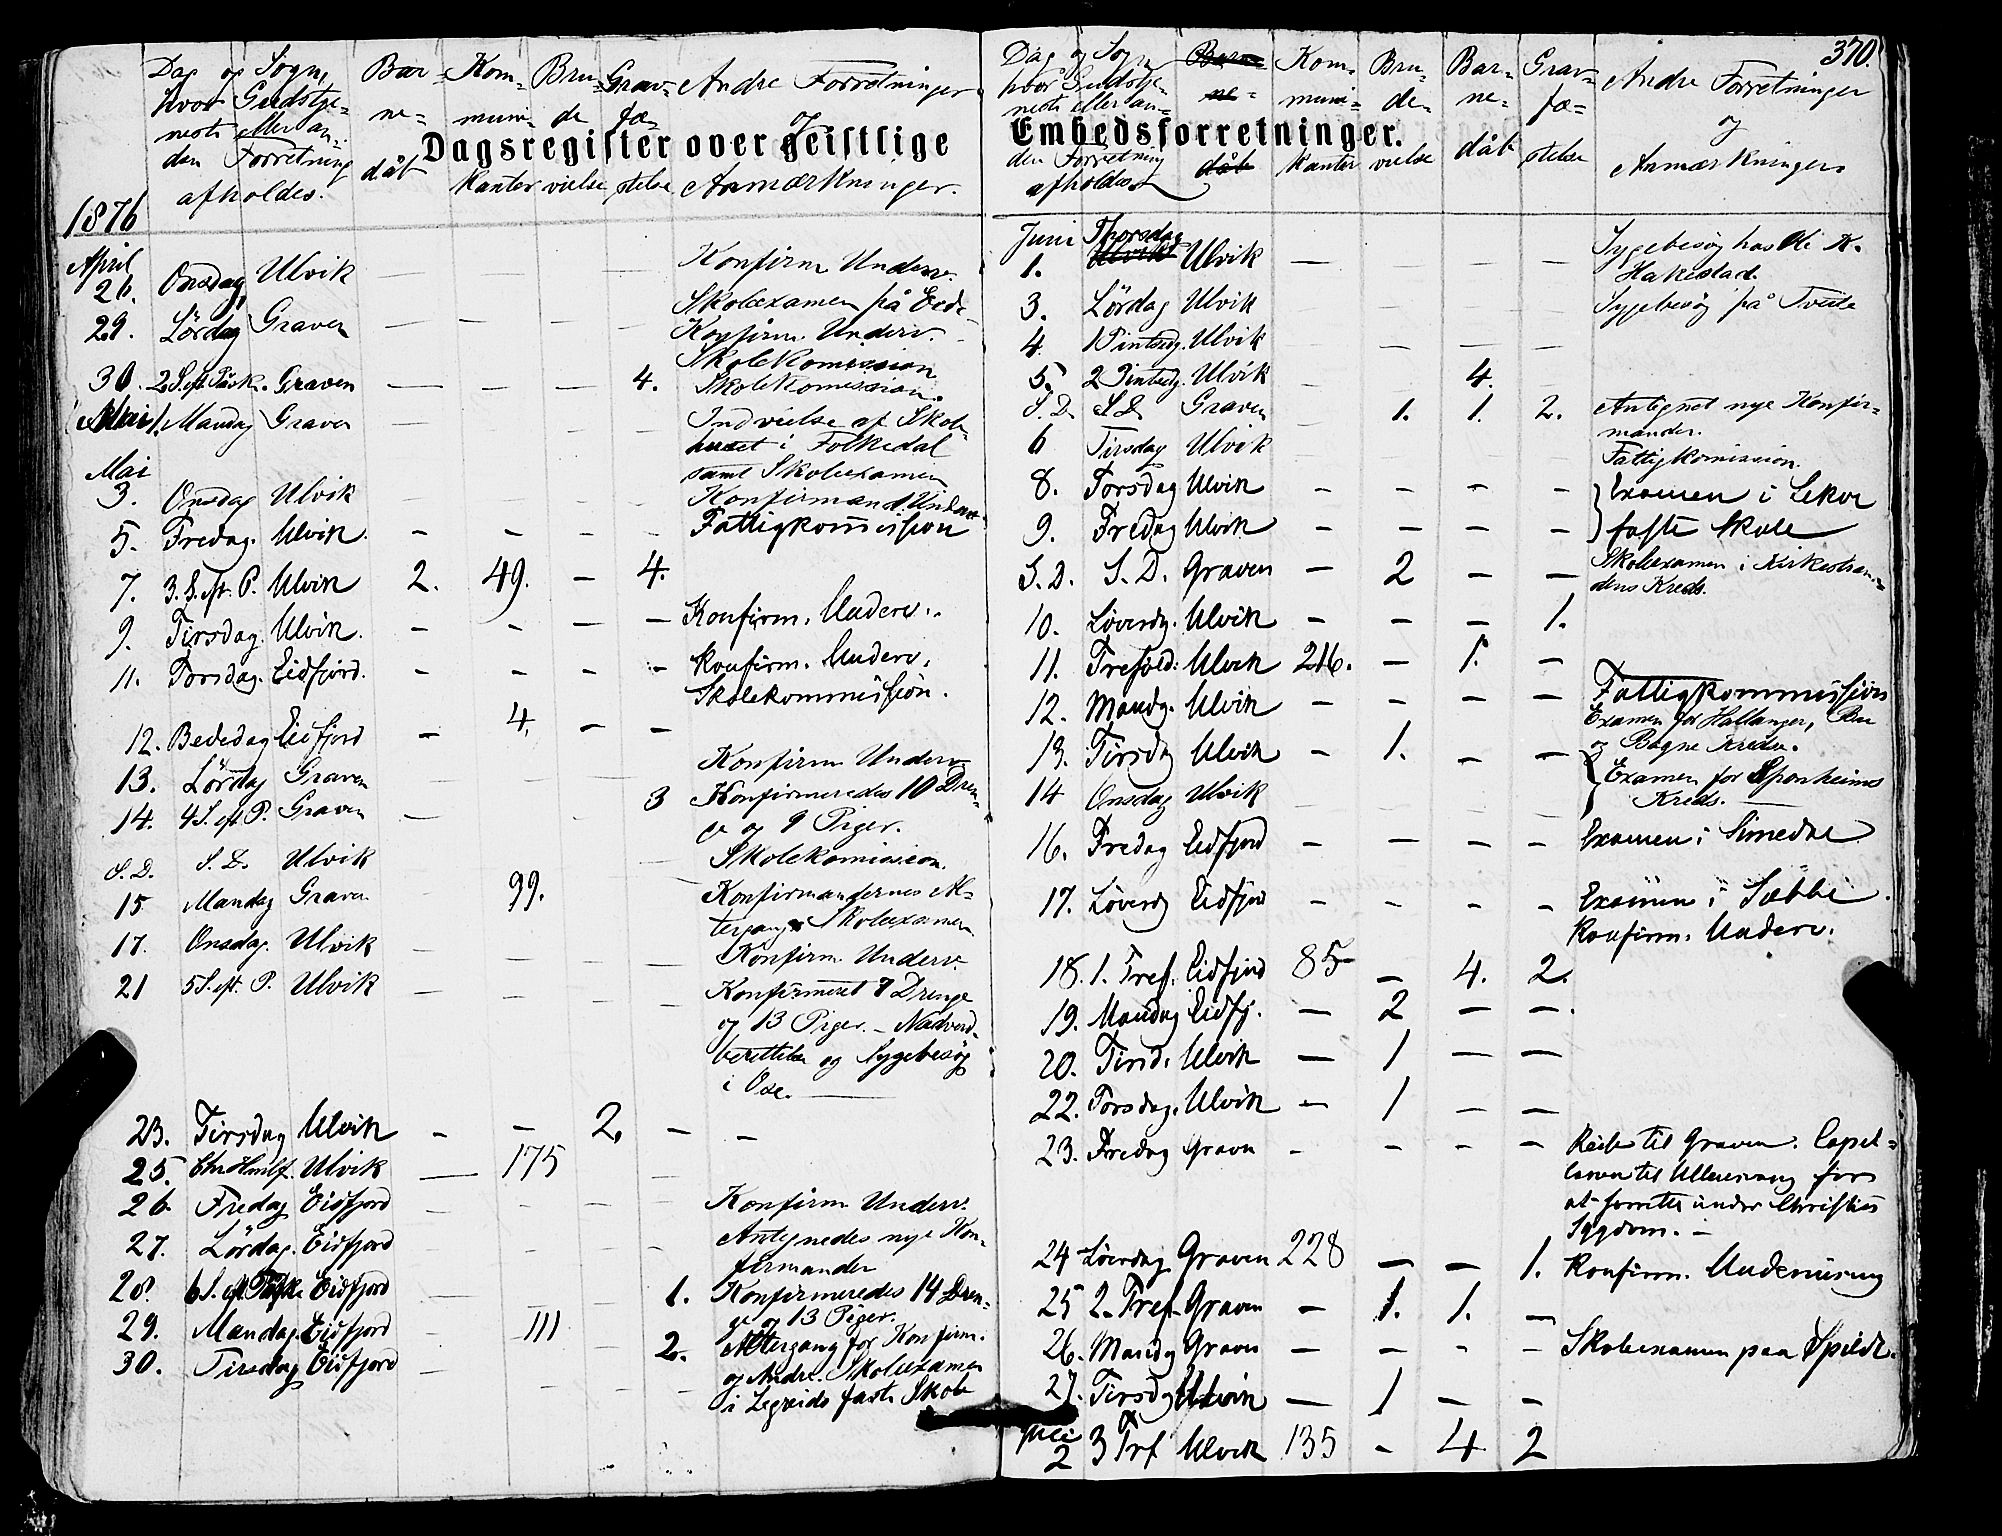 370.
Dagsregister over geistlige Embedsforretninger.
Dag og Sogn,
hvor Gudstje-
neste eller an-
den Forretning
afholdes.
Bar-
ne-
dåb
Kom-
muni-
kanter
Bru-
de
vielse
Grav-
fæ-
stelse
Andre Forretninger
og
Anmærkninger.
1876
April
26. Onsdag Ulvik — — — — Konfirm. Underv.
29. Lördag Graven — — — — Skolexamen på Eide
Konfirm. Underv.
Skolekomission
30. 2 S. eft. Påsk. Graven — — — 4. Skolekomission.
Mai 1. Mandag Graven — Indvielse af Skole-
huset i Folkedal
samt Skolexamen
Mai
3. Onsdag Ulvik — Konfirmand. Underv.
5. Fredag. Ulvik. — — — — Fattigkommission
7. 3. S. eft. P. Ulvik 2. 49. — 4.
9. Tirsdag. Ulvik. — — — — Konfirm. Underv.
11. Torsdag. Eidfjord. — — — — Konfirm. Underv.
Skolekommission.
12. Bededag Eidfjord — 4. — —
13. Lördag Graven Konfirm Underv
14. 4 S. eft P. Graven — 3 Konfirmeredes 10 Dren-
ge og 9 Piger.
S. D. S. D. Ulvik — Skolekomission.
15 Mandag Graven 99. Konfirmandernes Al-
tergang. Skolexamen
17. Onsdag. Ulvik — — — — Konfirm. Underv.
21 5 S. eft. P. Ulvik — — — — Konfirmeret 8 Drenge
og 13 Piger. — Nadverd-
berettelse og Sygebesøg
i Ose.
23. Tirsdag Ulvik — — 2. — —
25. Chr Himlf. Ulvik — 175
26 Fredag Eidfjord — — — Konfirm Underv.
27. Lördag. Eidfjord — — — — Antegnedes nye Kon-
firmander
28. 6 S. eft Påsk. Eidfjord — — — 1. Konfirmeredes 14 Dren-
ge og 13 Piger.
29. Mandag. Eidfjord — 111 2. Altergang for Konfirm.
og Andre. Skolexamen
30. Tirsdag Eidfjord — — — — i Legreids faste Skole
Dag og Sogn
hvor Gudstje-
neste eller an-
den Forretning
afholdes
Barne-
dåb
Kom-
muni-
kanter
Bru-
de-
vielse
Bar-
ne-
dåb
Grav-
fæ-
stelse
Andre Forretninger
og
Anmærkninger
Juni Thorsdag
1. Ulvik Ulvik — — — — Sygebesøg hos K.
Hakestad.
3. Lördag Ulvik Sygebesøg på Tveite
4. 1 Pintsedg. Ulvik — — — —
5. 2 Pintsedg. Ulvik — 4. —
S. D. S D. Graven — 1. 1. 2. Antegnet nye Konfir-
mander.
6 Tirsdag Ulvik Fattigkomission.
8. Torsdag Ulvik — — — — Examen i Lekve
9. Fredag Ulvik — — — — faste Skole
S. D. S. D. Graven — 2 — — Skolexamen i Kirkestran-
dens Kreds.
10. Löverdg. Ulvik — — — 1.
11. Trefold: Ulvik 216. — 1. —
12. Mandg. Ulvik — — — — Fattigkommission
Examen for Hallanger, Bu
13. Tirsdg Ulvik — 1. — — og Bagne Kreds.
14 Onsdag Ulvik Examen for Sponheims
Kreds. —
16. Fredag Eidfjord — — — — Examen i Simedal
17. Löverdg Eidfjord — — — — Examen i Sæbbe.
Konfirm. Underv.
18. 1. Tref. Eidfjord 85 — 4. 2.
19. Mandag Eidfj. — 2 — —
20. Tirsd. Ulvik — 1 — —
22. Torsdag. Ulvik — 1 — —
23. Fredag Graven — — — — Reise til Graven. Capel-
lanen til Ullensvang for
at forrette under Christies
Sygdom. —
24 Löverdag Graven 228 — — 1. Konfirm. Underviisning
25 2. Tref. Graven — 1. 1. —
26. Mandg Graven — — — — Skolexamen paa Spilde.
27. Tirsdg Ulvik — 1 — —
Juli
2 3 Trf Ulvik 135 — 4 2